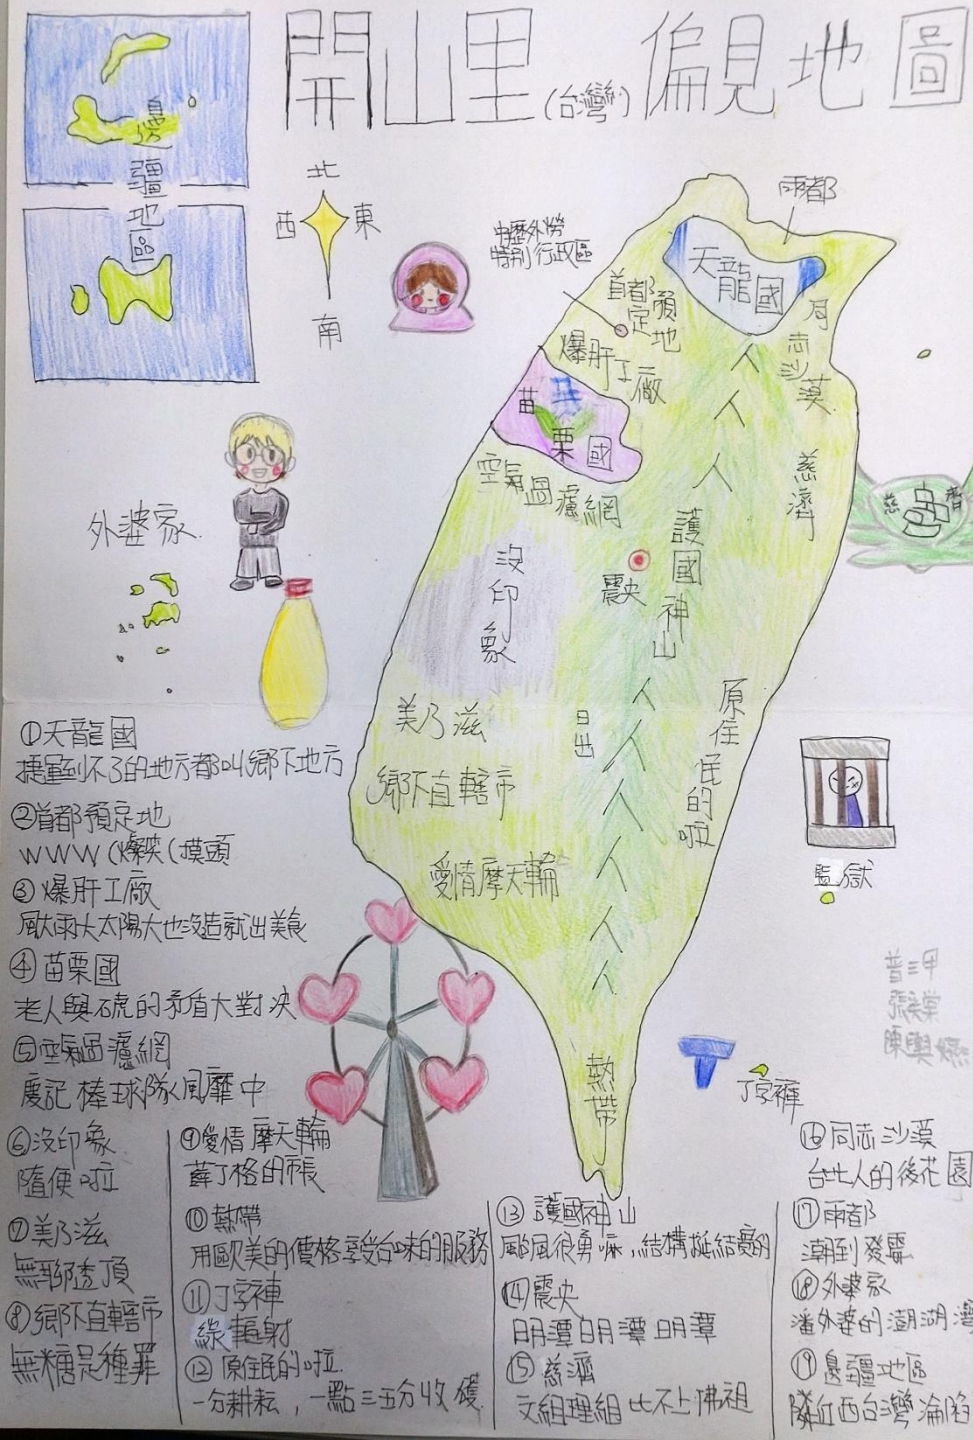 開山里(台灣)偏見地圖
邊疆地區
北
西 東
南
中壢外勞
特別行政區
雨都
天龍國
首都預定地
爆肝工廠
同志沙漠
苗栗國
空氣過濾網
慈濟
慈濟
外婆家
沒印象
震央
護國神山
美乃滋
日出
原住民的啦
鄉下直轄市
愛情摩天輪
監獄
熱帶
丁字褲
普三甲
①天龍國
捷運到不了的地方都叫鄉下地方
②首都預定地
WWW(燦笑(摸頭
③爆肝工廠
風大雨大太陽大也沒造就出美食
④苗栗國
老人與石虎的矛盾大對決
⑤空氣過濾網
慶記棒球隊風靡中
⑥沒印象
隨便啦
⑦美乃滋
無邪透頂
⑧鄉下直轄市
無糖是種罪
⑨愛情摩天輪
蘇丁格的市長
⑩熱帶
用歐美的價格享受台味的服務
⑪丁字褲
綠輻射
⑫原住民的啦
一分耕耘，一點三五分收穫
⑬護國神山
颱風很勇嘛,結構挺結實的
⑭震央
日月潭日月潭日月潭
⑮慈濟
文組理組比不上佛祖
⑯同志沙漠
台北人的後花園
⑰雨都
潮到發霉
⑱外婆家
潘外婆的澎湖灣
⑲邊疆地區
隊紅西台灣淪陷